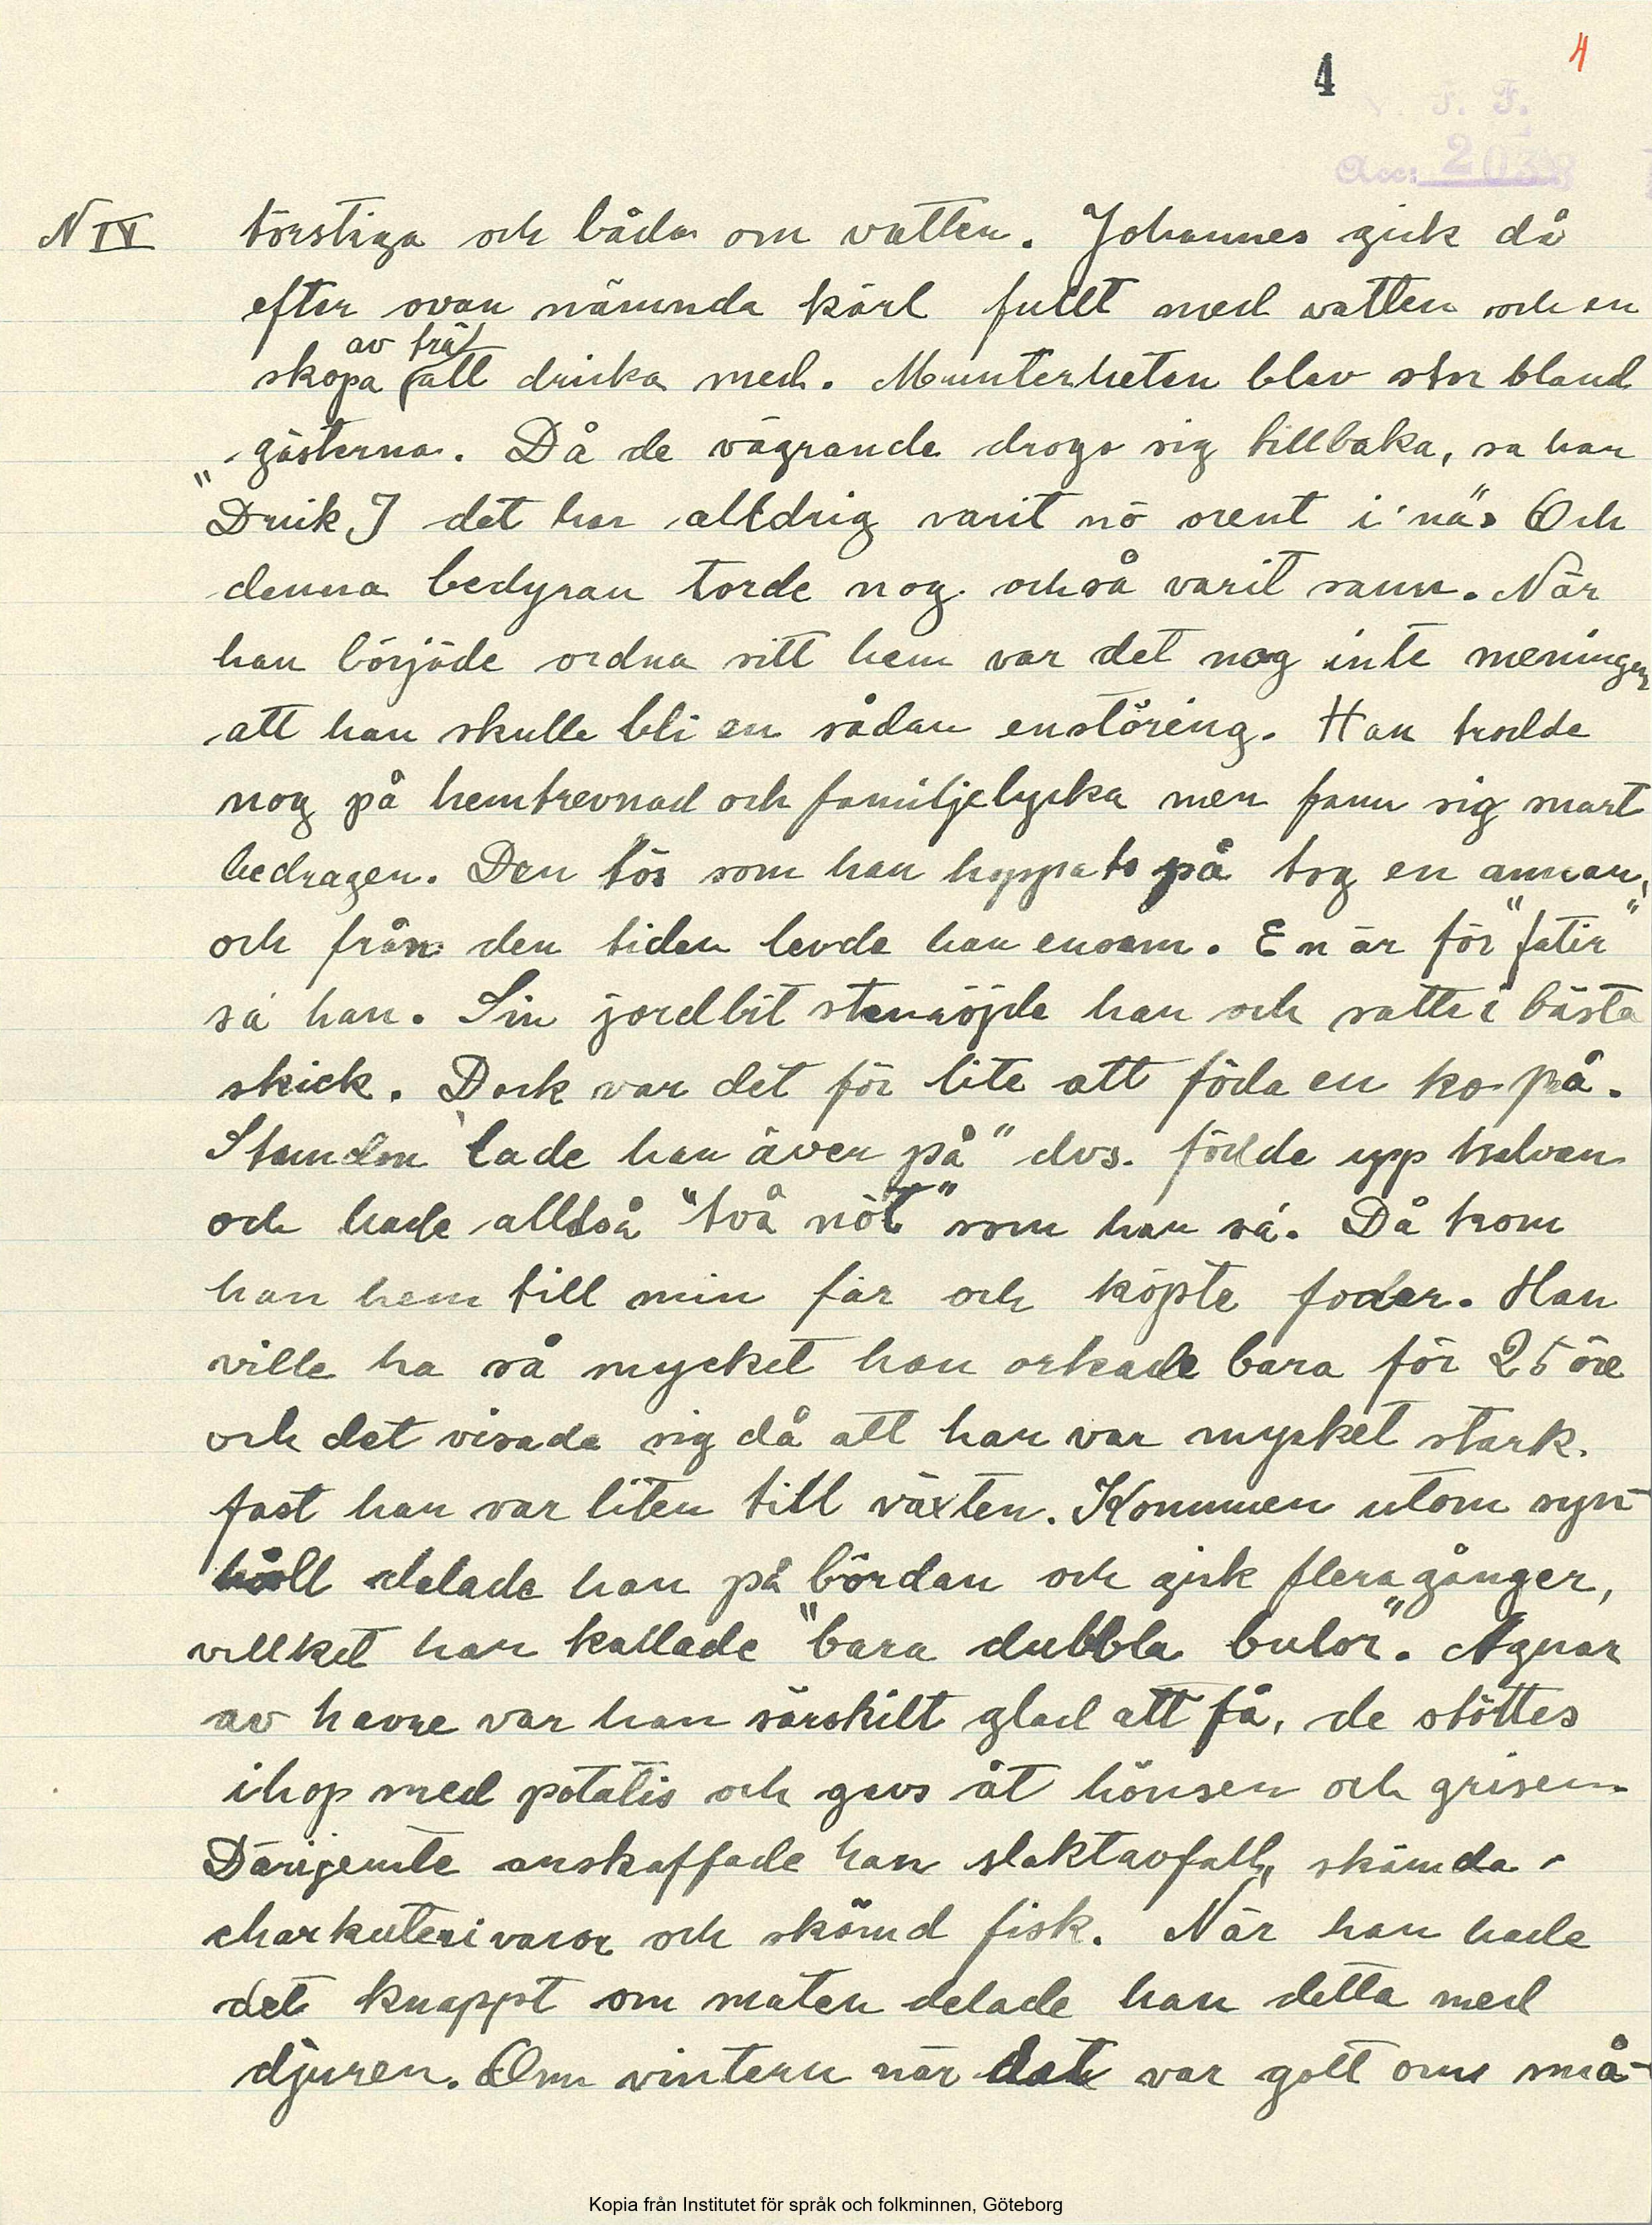 4
4
V. F. F.
Acc: 2038
N IV
törstiga och båda om vatten. Johannes gick då
efter ovan nämnda kärl fullt med vatten och en
av trä
skopa att dricka med. Munterheten blev stor bland
gästerna. Då de vägrande drogo sig tillbaka, sa han
"Drick I det har alldrig varit nö orent i nä". Och
denna bedyran torde nog också varit sann. När
han började ordna sitt hem var det nog inte meningen
att han skulle bli en sådan enstöring. Han trodde
nog på hemtrevnad och familjelycka men fann sig snart
bedragen. Den tös som han hoppats på tog en annan,
och från den tiden levde han ensam. En är för "fatir"
sa han. Sin jordbit stenröjde han och satte i bästa
skick. Dock var det för lite att föda en ko på.
Stundom "lade han även på" dvs. födde upp kalven
och hade alltså "två nöt" som han sa. Då kom
han hem till min far och köpte foder. Han
ville ha så mycket han orkade bara för 25 öre
och det visade sig då att han var mycket stark.
fast han var liten till växten. Kommen utom syn-
håll delade han på bördan och gick flera gånger,
villket han kallade "bara dubbla bulor". Agnar
av havre var han särskilt glad att få, de stöttes
ihop med potatis och gavs åt hönsen och grisen.
Därjemte anskaffade han slaktavfall, skämda
charkuterivaror och skämd fisk. När han hade
det knappt om maten delade han detta med
djuren. Om vintern när det var gott om små-
Kopia från Institutet för språk och folkminnen, Göteborg